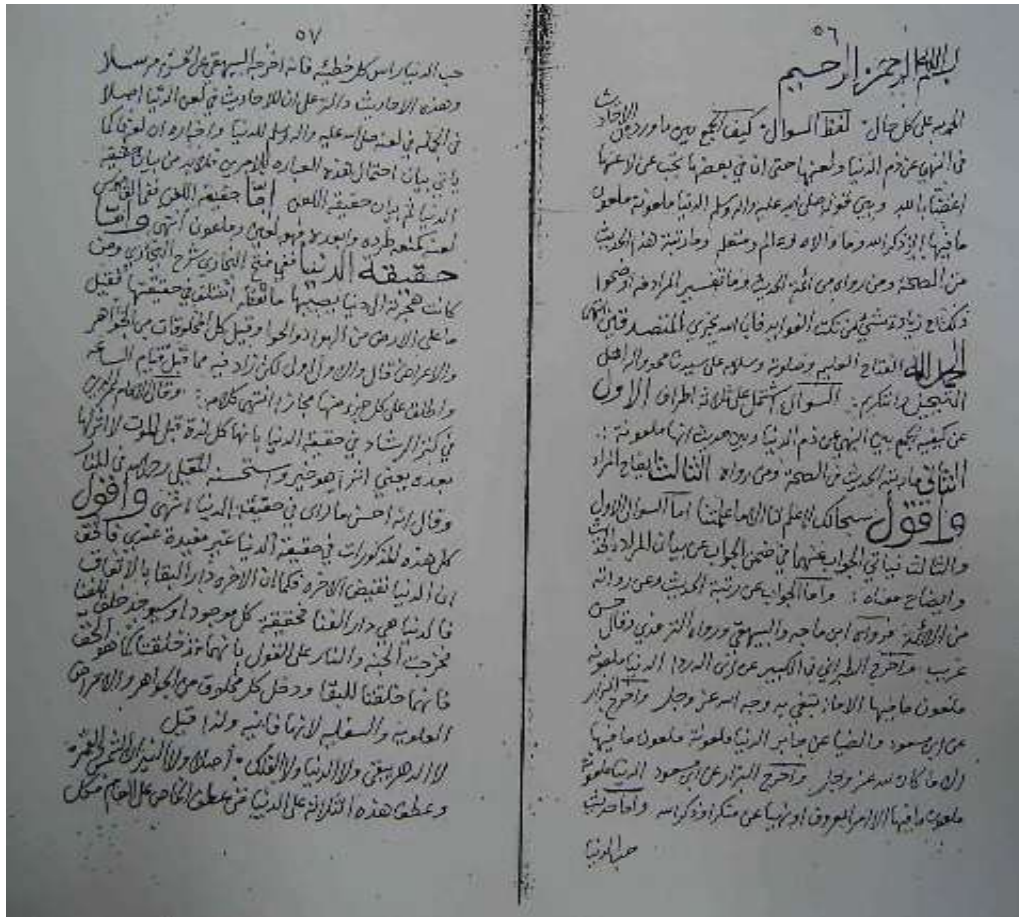 ٥٦
بسم الله الرحمن الرحيم
الحمد لله على كل حال لفظ السوال كيف الجمع بين ما ورد من الاحاديث
في النهي عن ذم الدنيا ولعنها حتى ان في بعضها
وبين قوله صلى الله عليه واله وسلم الدنيا ملعونة ملعون
ما فيها الا ذكر الله وما والاه وعالم ومتعلم وما رتبة هذه الحديث
من الصحة ومن رواه من ائمة الحديث وما تفسير المراد فيه اوضحوا
ذلك زيادة شيء من نكت الفوايد فان الله يجزي المتصدقين
الحمد لله الفتاح العليم وصلوته وسلامه على سيدنا محمد واله اهل
التبجيل والتكريم السوال اشتمل على ثلاثة اطراف الاول
عن كيفية الجمع بين النهي عن ذم الدنيا وبين حديث انها ملعونة
الثاني ما رتبة الحديث في الصحة ومن رواه الثالث ايضاح المراد
واقول سبحانك لا علم لنا الا ما علمتنا اما السوال الاول
والثالث فياتي الجواب عنهما في ضمن الجواب عن بيان المراد
وايضاح معناه واما الجواب عن رتبة الحديث وعن رواته
من الائمة فرواه ابن ماجه والبيهقي ورواه الترمذي وقال حسن
غريب واخرج الطبراني في الكبير عن ابي الدرداء الدنيا ملعونة
ملعون ما فيها الا ما ابتغي به وجه الله عز وجل واخرج البزار
عن ابن مسعود والضيا عن جابر الدنيا ملعونة ملعون ما فيها
الا ما كان لله عز وجل واخرج البزار عن ابن مسعود الدنيا ملعونة
ملعون ما فيها الا امر بالمعروف او نهيا عن منكر او ذكر الله واما حديث
حب الدنيا
٥٧
حب الدنيا راس كل خطيئه فانه اخرجه البيهقي عن مرسلا
وهذه الاحاديث دالة على ان للاحاديث في لعن الدنيا اصلا
في الجمله في لعنه صلى الله عليه واله وسلم للدنيا واخباره ان لعنها كما
ياتي بيان احتمال هذه العباره للامرين فلابد من بيان حقيقة
الدنيا ثم بيان حقيقة اللعن اما حقيقة اللعن ففي القاموس
لعنه كمنعه طرده وابعده فهو لعين وملعون انتهى واما
حقيقة الدنيا ففي فتح الباري شرح البخاري ومن
كانت هجرته الى دنيا يصيبها ما لفظه اختلف في حقيقتها فقيل
ما على الارض من الهواء والجو وقيل كل المخلوقات من الجواهر
والاعراض قال والاول اولى لكن زاد فيه مما قبل قيام الساعه
واطلق على كل جزء منها مجازا انتهى كلامه وقال الامام
في كنز الرشاد في حقيقة الدنيا بانها كل لذة قبل الموت لا اثر لها
بعده يعني اثر هو خير واستحسنه المقبلي رحمه الله في المنار
وقال انه احسن ما راى في حقيقة الدنيا انتهى واقول
كل هذه المذكورات في حقيقة الدنيا غير مفيدة عندي فالحق
ان الدنيا نقيض الاخره فكما ان الاخره دار البقا بالاتفاق
فالدنيا هي دار الفنا فحقيقة كل موجود او سيوجد خلق للفنا
فخرجت الجنه والنار على القول بانهما قد خلقتا كما هو الحق
فانهما خلقتا للبقا ودخل كل مخلوق من الجواهر والاعراض
العلويه والسفليه لانها فانيه ولذا قيل
لا الدهر يبقى ولا الدنيا ولا الفلك اصلا ولا النيران الشمس والقمر
وعطف هذه الثلاثة على الدنيا من عطف الخاص على العام